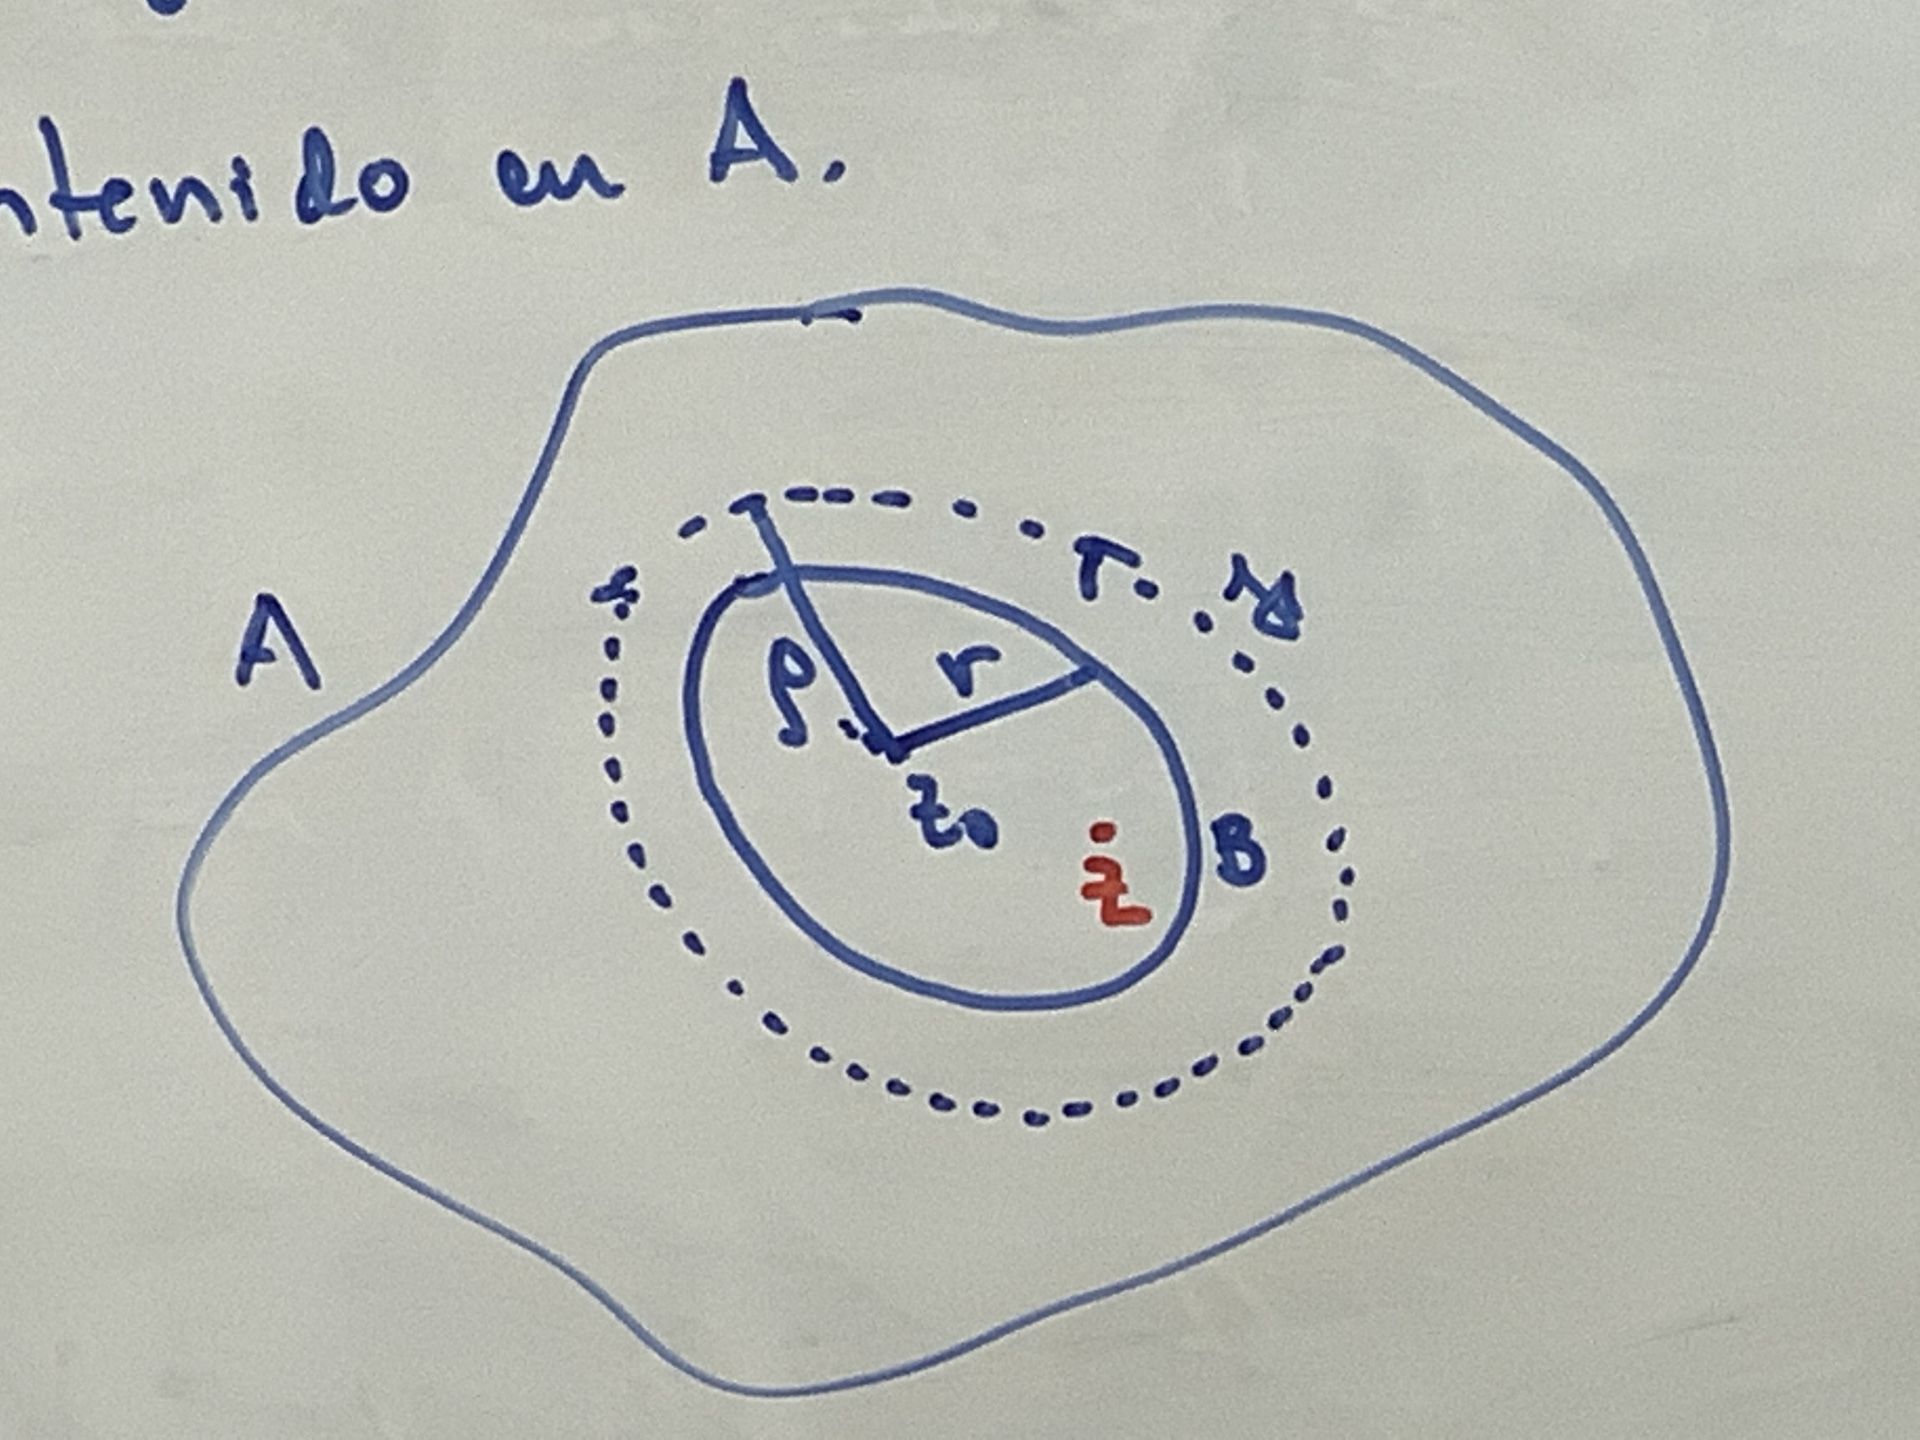 ntenido en A.
A
ρ
r
z₀
z
B